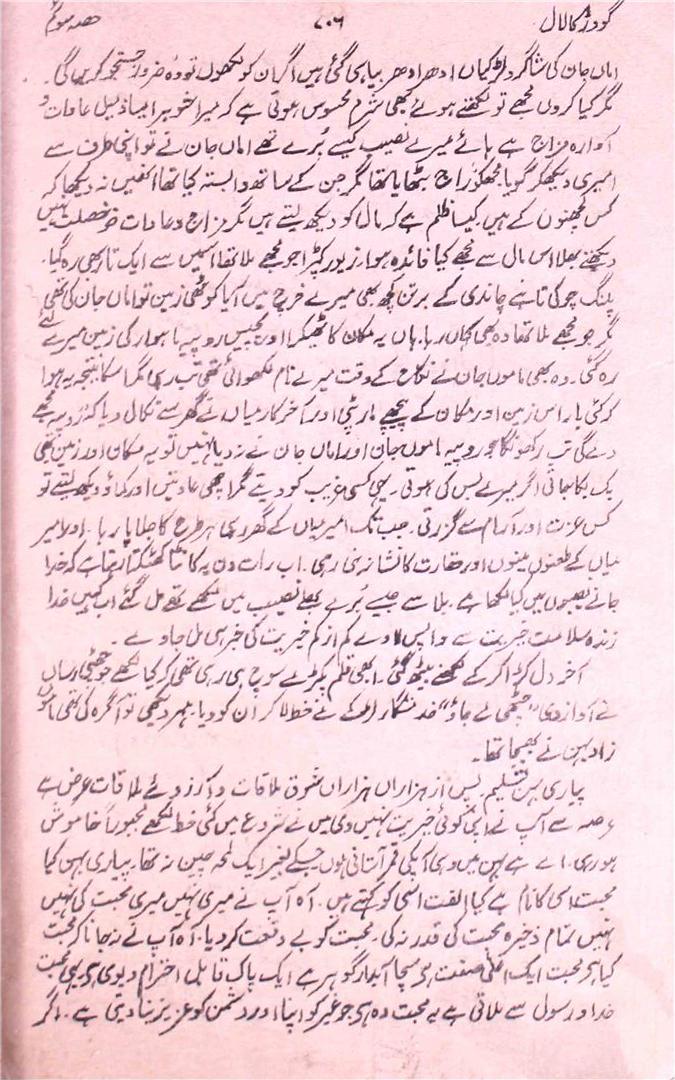 گودڑ کا لال ۷۰۶ حصہ سوم
اماں جان کی شاگرد لڑکیاں ادھر ادھر بیاہی گئی ہیں اگر ان کو لکھوں تو وہ ضرور جستجو کریں گی۔
مگر کیا کروں مجھے تو لکھتے ہوئے بھی شرم محسوس ہوتی ہے کہ میرا شوہر ایسا ذلیل عادات و
آوارہ مزاج ہے ہائے میرے نصیب کیسے بُرے تھے اماں جان نے تو اپنی طرف سے
امیری دیکھکر گویا مجھکو راج بٹھایا تھا مگر جن کے ساتھ وابستہ کیا تھا انھیں نہ دیکھا کہ
کس لچھنوں کے ہیں کیسا ظلم ہے کہ مال کو دیکھ لیتے ہیں مگر مزاج و عادات خو خصلت نہیں
دیکھتے بھلا اس مال سے مجھے کیا فائدہ ہوا۔ زیور کپڑا جو مجھے ملا تھا اسمیں سے ایک تار بھی رہ گیا۔
پلنگ چوکی تانبے چاندی کے برتن کچھ بھی میرے خرچ میں آیا کوٹھی زمین تو اماں جان کی تھی
مگر جو مجھے ملا تھا وہ بھی کہاں رہا۔ ہاں یہ مکان کا ٹھیکرا اور پچیس روپیہ ماہوار کی زمین میرے لئے
رہ گئی۔ وہ بھی ماموں جان نے نکاح کے وقت میرے نام لکھوائی تھی تب رہی مگر اسکا نتیجہ یہ ہوا
کہ کئی بار اس زمین اور مکان کے پیچھے مار پٹی اور آخر کار میاں نے گھر سے نکال دیا کہ روپیہ مجھے
دے گی تب رکھونگا جو روپیہ ماموں جان اور اماں جان نے نہ دیا نہیں تو یہ مکان اور زمین بھی
بک بکا جاتی اگر میرے بس کی ہوتی۔ یہی کسی غریب کو دیتے مگر اچھی عادتیں اور کماؤ دیکھ لیتے تو
کس عزت اور آرام سے گزرتی۔ جب تک امیر میاں کے گھر رہی ہر طرح کا جلاپا رہا۔ اور امیر
میاں کے طعنوں مینوں اور حقارت کا نشانہ بنی رہی۔ اب رات دن یہ کانٹا کھٹکتا رہتا ہے کہ خدا
جانے نصیبوں میں کیا لکھا ہے۔ بلا سے جیسے بُرے بھلے نصیب میں لکھے تھے مل گئے اب کہیں خدا
زندہ سلامت خیریت سے واپس لاوے کم از کم خیریت کی خبر ہی مل جاوے۔
آخر دل کڑا کر کے لکھنے بیٹھ گئی۔ ابھی قلم پکڑے سوچ ہی رہی تھی کہ کیا لکھے جو چٹھی رساں
نے آواز دی "چٹھی لے جاؤ" خدمتگار لڑکے نے خط لا کر ان کو دیا۔ مہر دیکھی تو آگرہ کی تھی ماموں
زاد بہن نے بھیجا تھا۔
پیاری بہن تسلیم۔ پس از ہزاراں ہزاراں شوق ملاقات و آرزوئے ملاقات عرض ہے
عرصہ سے آپ نے اپنی کوئی خیریت نہیں دی میں نے شروع میں کئی خط لکھے مجبوراً خاموش
ہو رہی۔ اے ہے بہن میں وہی آپکی قمر آستانی ہوں جسکے بغیر ایک لمحہ چین نہ تھا۔ پیاری بہن کیا
محبت اسی کا نام ہے کیا الفت اسی کو کہتے ہیں۔ آہ آپ نے میری نہیں میری محبت کی نہیں
نہیں تمام ذخیرہ محبت کی قدر نہ کی۔ محبت کو بے وقعت کر دیا۔ آہ آپ نے نہ جانا کہ محبت
کیا ہے محبت ایک اعلیٰ صفت ہے سچا آبدار گوہر ہے ایک پاک قابل احترام دیوی ہے یہی محبت
خدا و رسول سے ملاتی ہے یہ محبت وہ ہے جو غیر کو اپنا اور دشمن کو عزیز بنا دیتی ہے۔ اگر